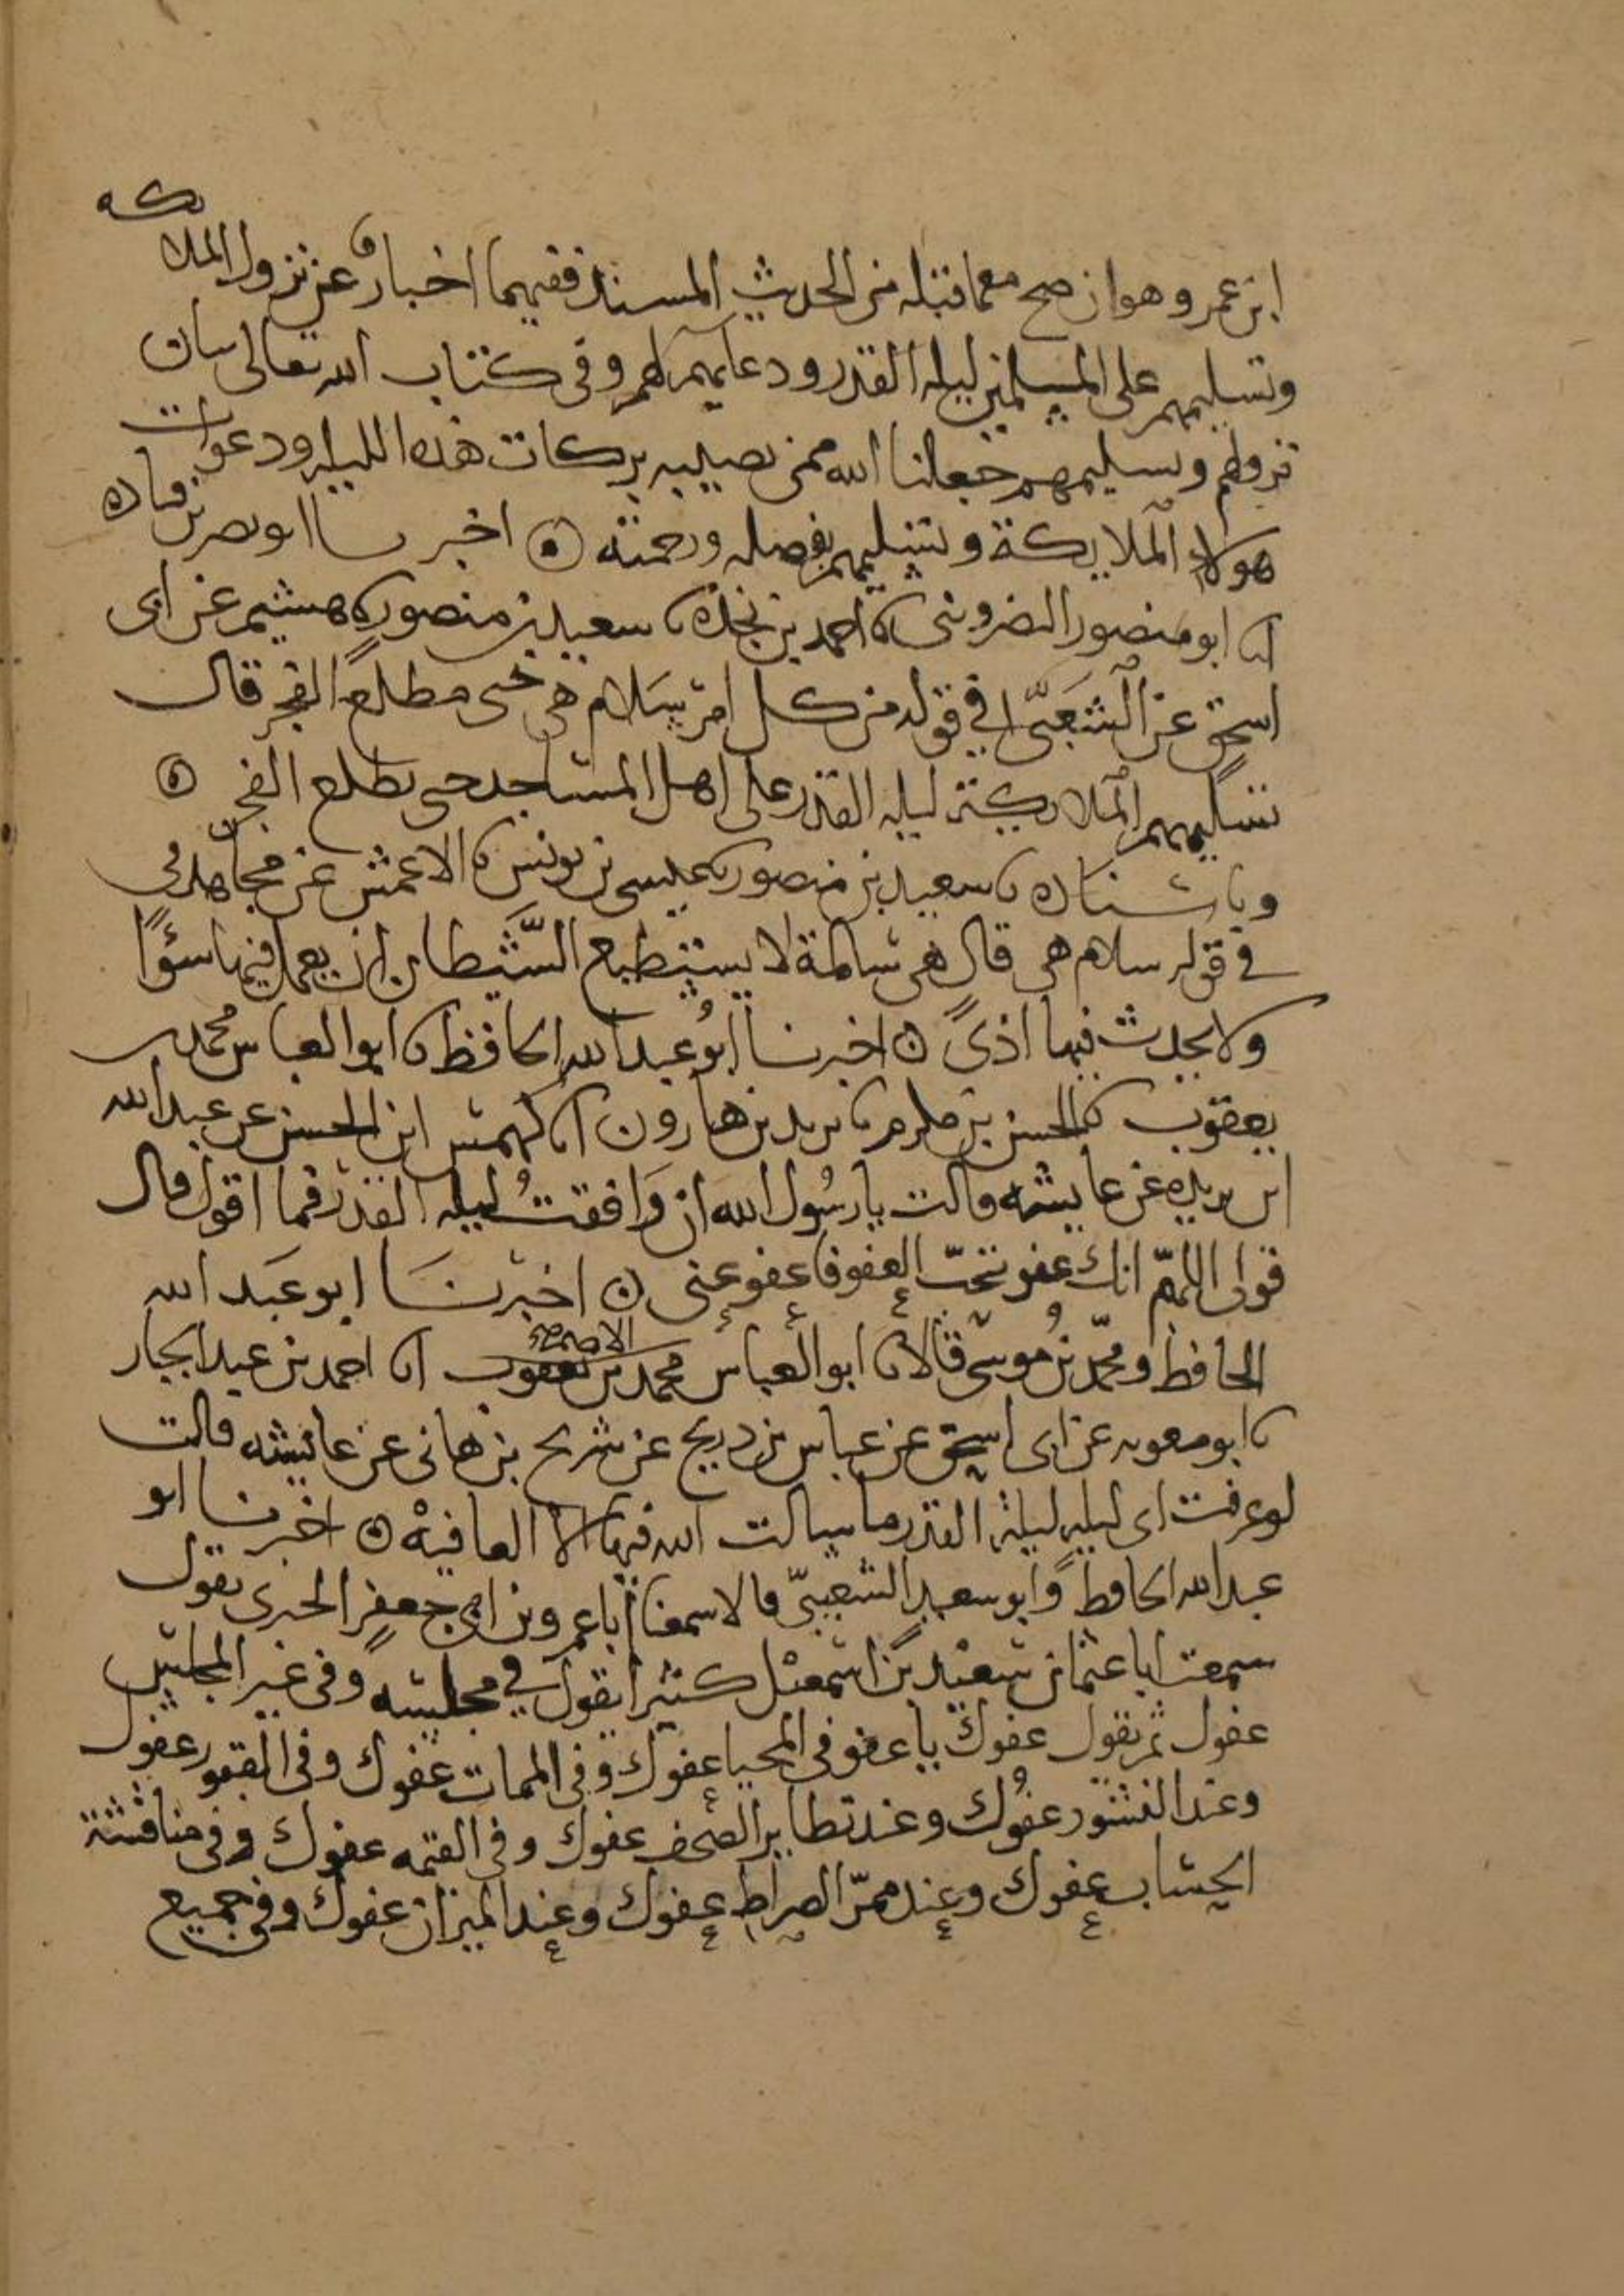 ابن عمر وهو ان صح مع ما قبله من الحديث المسند ففيهما اخبار عن نزول الملائكه
وتسليمهم على المسلمين ليلة القدر ودعائهم لهم وفى كتاب الله تعالى بيان
نزولهم وتسليمهم جعلنا الله ممن تصيبه بركات هذه الليله ودعوات
هولاء الملايكة وتسليمهم بفضله ورحمته ۞ اخبرنا ابو نصر بن قتاده
انا ابو منصور النضرونى نا احمد بن نجده نا سعيد بن منصور نا هشيم عن ابى
اسحق عن الشعبى في قوله من كل امر سلام هى حتى مطلع الفجر قال
تسليمهم الملايكة ليله القدر على اهل المساجد حتى يطلع الفجر ۞
وباسناده نا سعيد بن منصور نا عيسى بن يونس نا الاعمش عن مجاهد فى
في قوله سلام هى قال هى سالمة لا يستطيع الشيطان ان يعمل فيها سؤًا
ولا يحدث فيها اذىً ۞ اخبرنا ابو عبد الله الحافظ نا ابو العباس محمد بن
يعقوب نا الحسن بن مكرم نا يزيد بن هارون انا كهمس ابن الحسن عن عبد الله
ابن بريده عن عايشه قالت يا رسُول الله ان وَافقتُ ليله القدر فما اقول قال
قولى اللهمّ انك عفو تحبّ العفو فاعفو عنى ۞ اخبرنَا ابو عبَد الله
الحافظ ومحمّد بن مُوسَى قالا نا ابو العباس محمد بن يعقوب الاصم انا احمد بن عبد الجبار
نا ابو معويه عن ابى اسحق عن عباس بن دريج عن شريح بن هانى عن عائيشه قالت
لو عرفت اى ليله ليلة القدر ما سالت الله فيها الا العافيهْ ۞ اخبرنا ابو
عبد الله الحافظ وابو سعيد الشعيبىّ قالا سمعنا ابا عمرو بن ابى جعفر الحيرى يقول
سمعت ابا عثمان سعيد بن اسمعيل كثيرا يقول في مجلسه وفى غير المجلس
عفوك ثم يقول عفوك يا عفو فى المحيا عفوك وفى الممات عفوك وفى القبور عفوك
وعند النشور عفوُك وعند تطاير الصحف عفوك وفى القيمه عفوك وفى مناقشة
الحساب عفوك وعند ممرّ الصراط عفوك وعند الميزان عفوك وفى جميع